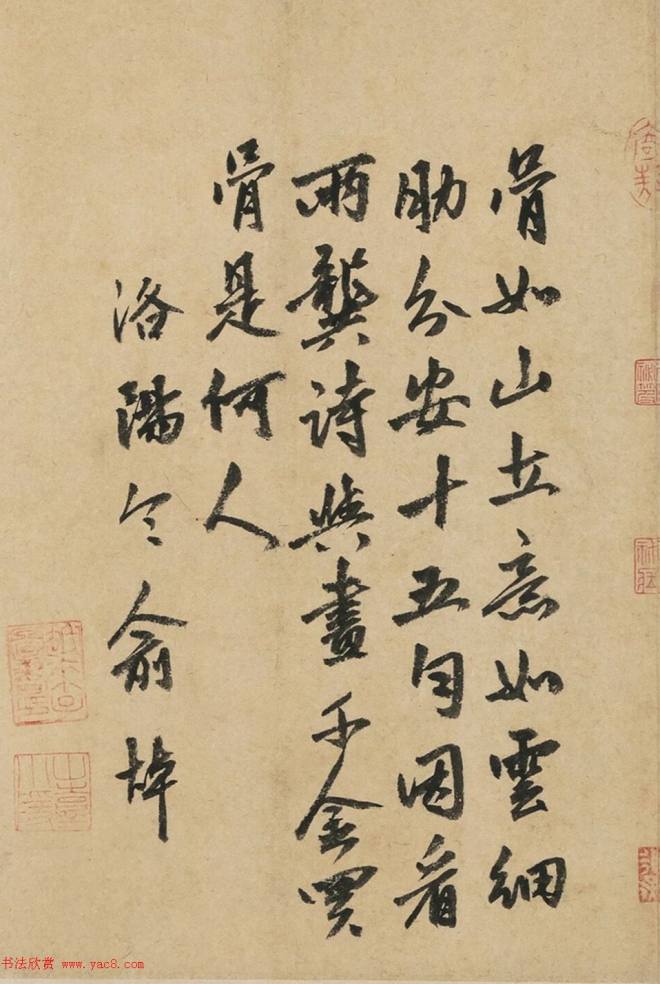 骨如山立意如雲細
肋分安十五勻因看
兩龔詩與畫千金買
骨是何人
洛陽令俞焯
书法欣赏 www.yac8.com